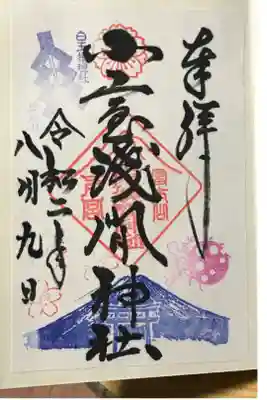 奉拝
小室淺間神社
令和二年
八月九日